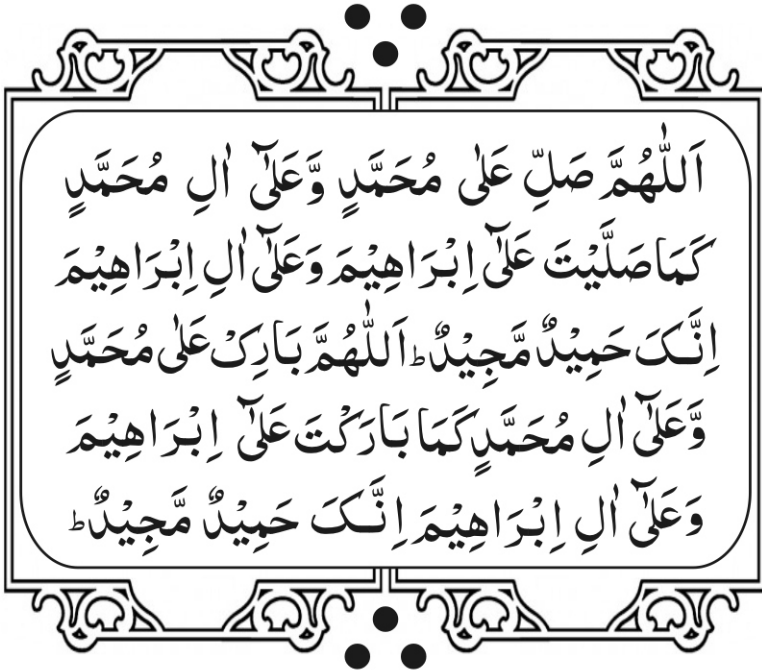 اَللّٰهُمَّ صَلِّ عَلٰى مُحَمَّدٍ وَّعَلٰٓى اٰلِ مُحَمَّدٍ
كَمَا صَلَّيْتَ عَلٰٓى اِبْرَاهِيْمَ وَعَلٰٓى اٰلِ اِبْرَاهِيْمَ
اِنَّكَ حَمِيْدٌ مَّجِيْدٌ ؕ اَللّٰهُمَّ بَارِكْ عَلٰى مُحَمَّدٍ
وَّعَلٰٓى اٰلِ مُحَمَّدٍ كَمَا بَارَكْتَ عَلٰٓى اِبْرَاهِيْمَ
وَعَلٰٓى اٰلِ اِبْرَاهِيْمَ اِنَّكَ حَمِيْدٌ مَّجِيْدٌ ؕ